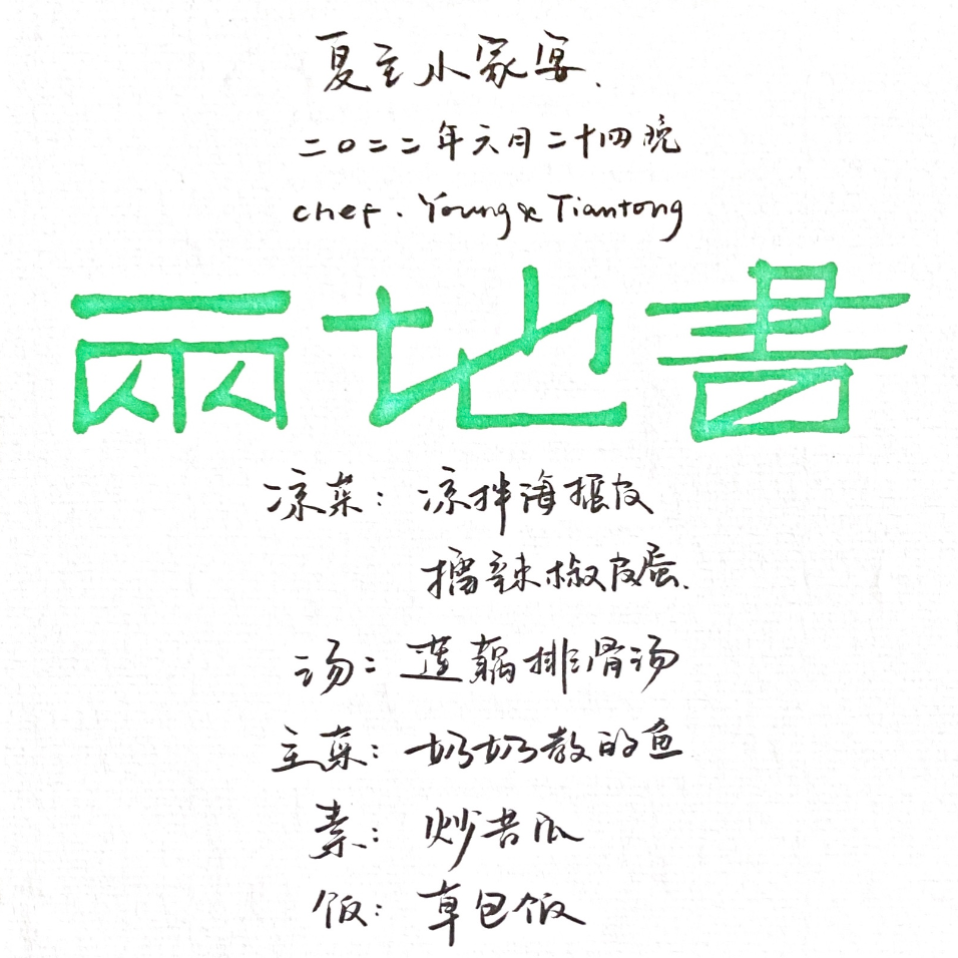 夏至小家宴.
二〇二二年六月二十四晚
chef. Young & Tiantong
兩地書
凉菜：凉拌海蜇皮
擂辣椒皮蛋.
汤：莲藕排骨汤
主菜：奶奶教的鱼
素：炒苦瓜
饭：草包饭